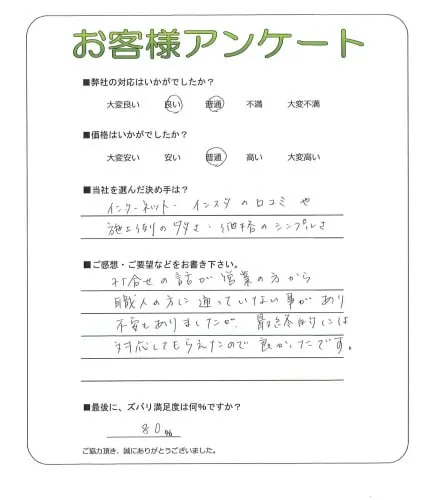 お客様アンケート
■弊社の対応はいかがでしたか?
大変良い 良い 普通 不満 大変不満
■価格はいかがでしたか?
大変安い 安い 普通 高い 大変高い
■当社を選んだ決め手は?
インターネット・インスタの口コミや
施工例の多さ・価格のシンプルさ
■ご感想・ご要望などをお書き下さい。
打合せの話が営業の方から
職人の方に通っていない事があり
不安もありましたが、最終的には
対応してもらえたので良かったです。
■最後に、ズバリ満足度は何%ですか?
80%
ご協力頂き、誠にありがとうございました。